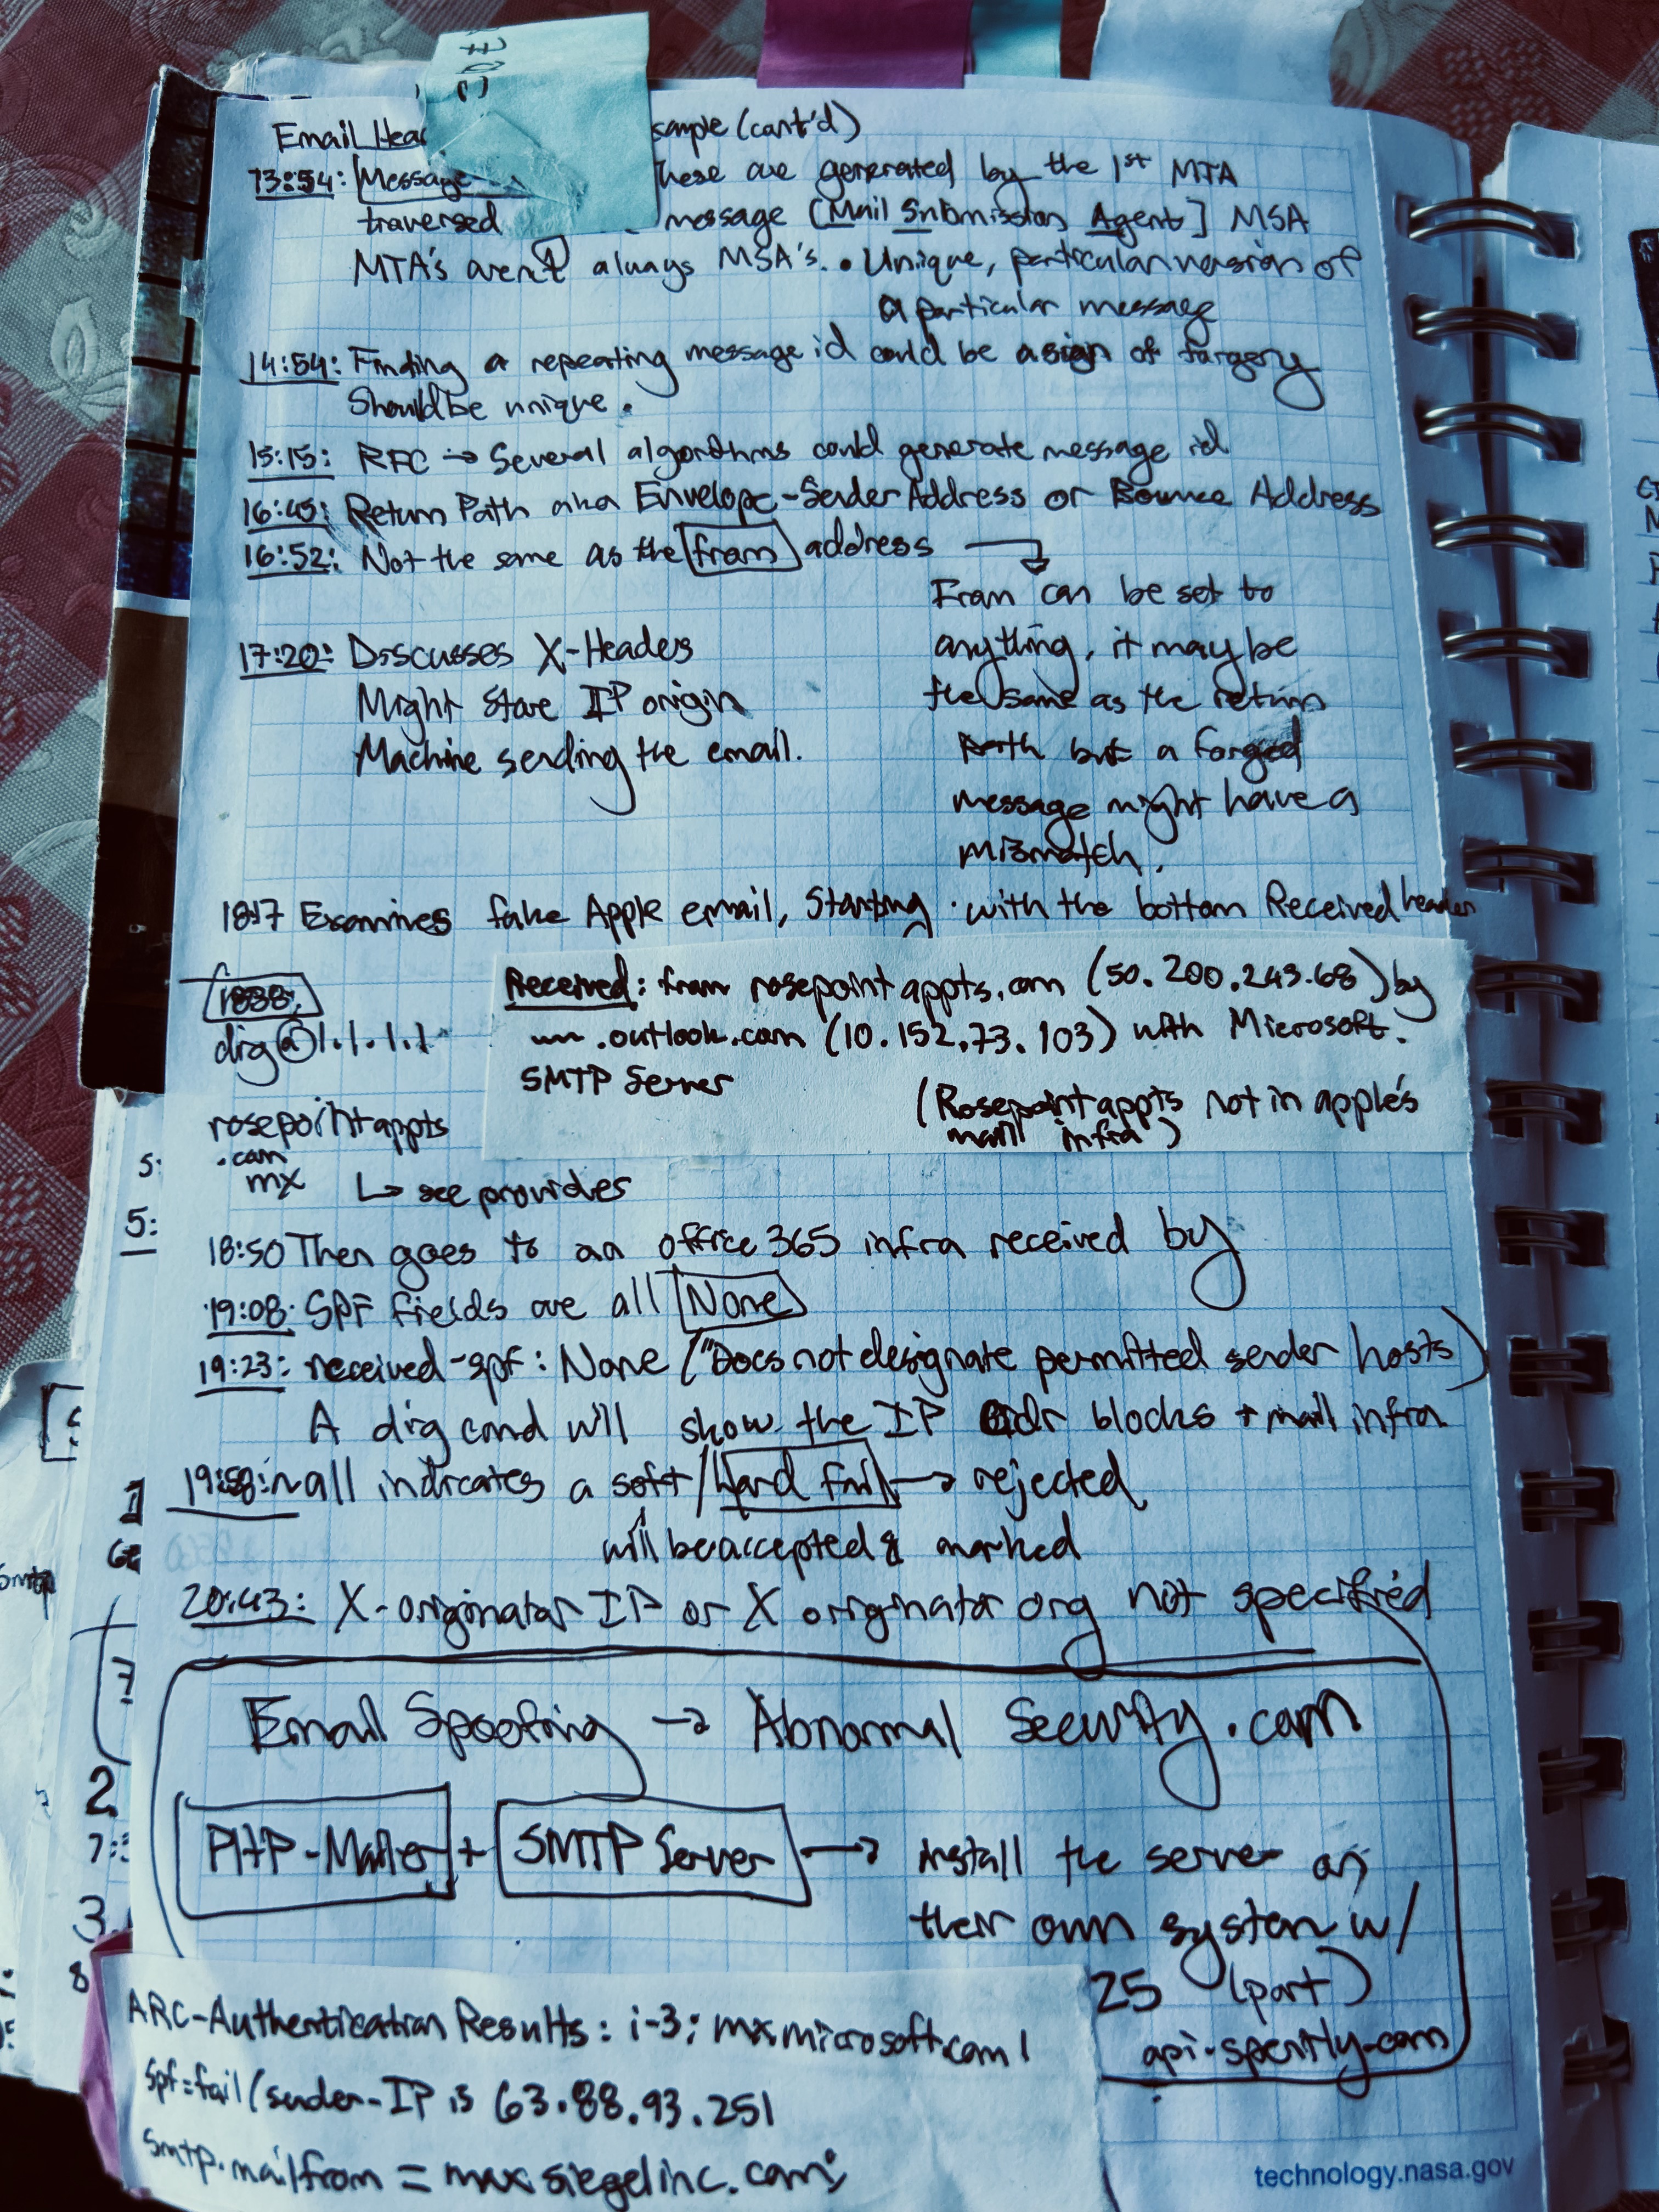 Email Hea sample (cont'd)
13:54: Message hese are generated by the 1st MTA
traversed message [Mail Submission Agent] MSA
MTA's aren't always MSA's. • Unique, particular version of
a particular message
14:54: Finding a repeating message id could be a sign of forgery
Should be unique.
15:15: RFC → Several algorithms could generate message id
16:45: Return Path aka Envelope-Sender Address or Bounce Address
16:52: Not the same as the from address
From can be set to
anything, it may be
the same as the return
path but a forged
message might have a
mismatch.
17:20: Discusses X-Headers
Might store IP origin
Machine sending the email.
18:17 Examines fake Apple email, Starting with the bottom Received header
1838:
dig @1.1.1.1
rosepointappts
.com
mx ↳ see provides
Received: from rosepointappts.com (50.200.243.68) by
.outlook.com (10.152.73.103) with Microsoft.
SMTP Server
(Rosepointappts not in apple's
mail infra)
18:50 Then goes to an office 365 infra received by
19:08: SPF fields are all None
19:23: received-spf: None ("Does not designate permitted sender hosts)
A dig cmd will show the IP addr blocks + mail infra
19:58: ~all indicates a soft/Hard Fail → rejected
will be accepted & marked
20:43: X-originator IP or X originator org not specified
Email Spoofing → Abnormal Security.com
PHP-Mailer + SMTP Server → install the server on
their own system w/
25 (port)
api-spently-com
ARC-Authentication Results: i-3; mx microsoft.com 1
Spf=fail (sender-IP is 63.88.93.251
Smtp.mailfrom = max siegelinc.com;
technology.nasa.gov